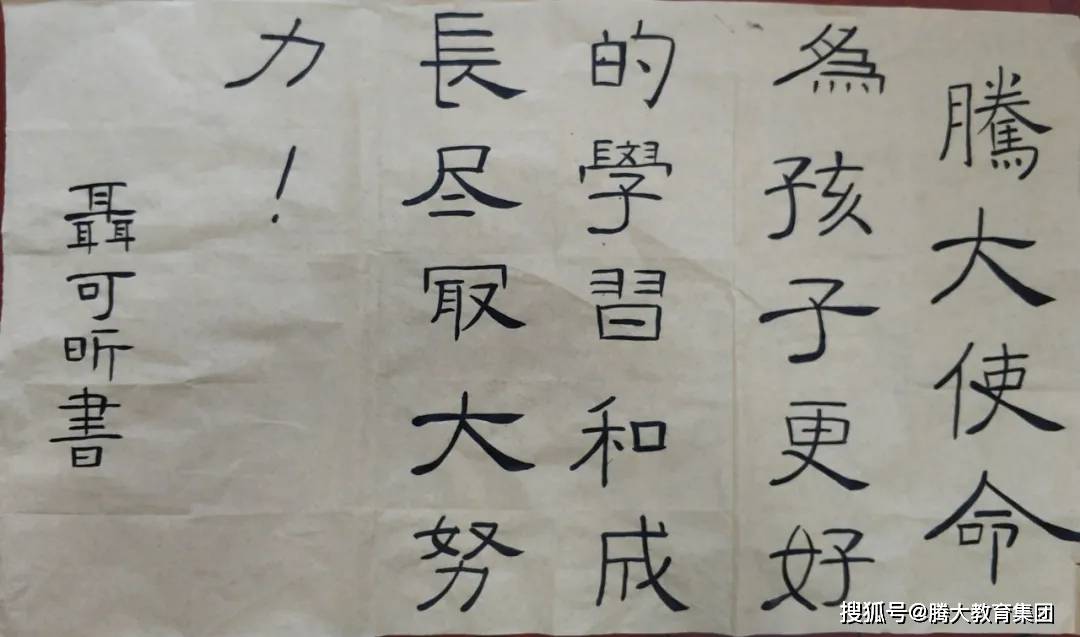 騰大使命
為孩子更好
的學習和成
長尽冣大努
力！
聶可昕書
搜狐号@腾大教育集团